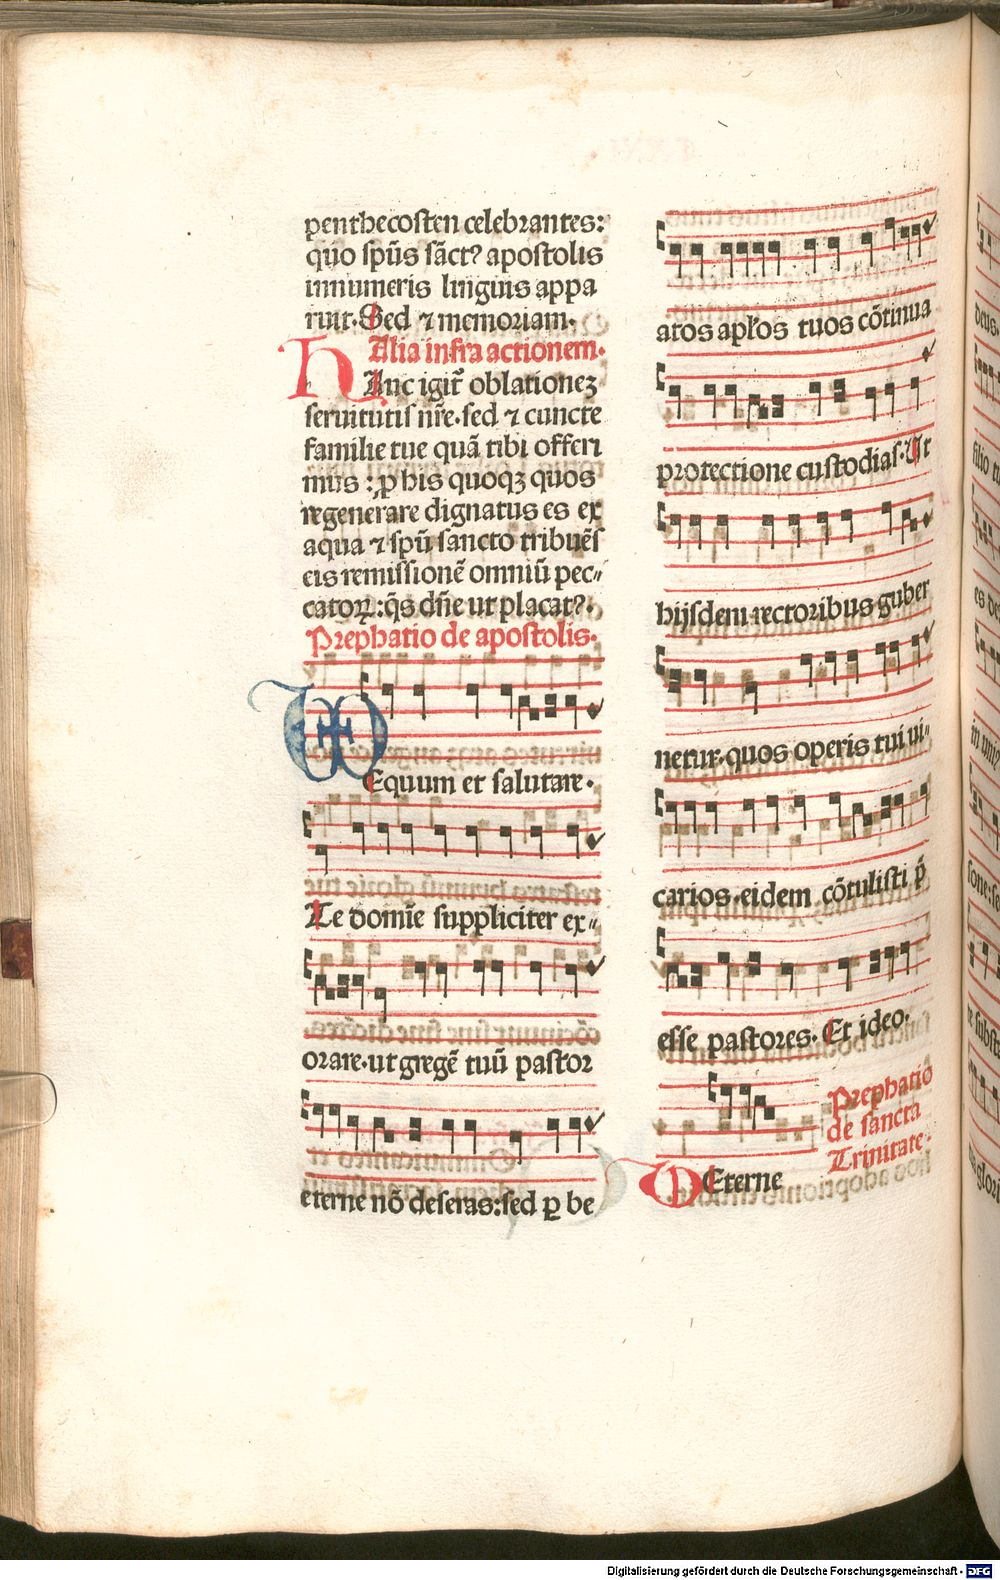 penthecosten celebrantes:
quo spũs sãctꝰ apostolis
innumeris linguis appa
ruit. Sed ⁊ memoriam.
Alia infra actionem.
HAnc igit̃ oblationeꝫ
seruitutis nr̃e. sed ⁊ cuncte
familie tue quã tibi offeri
mus: ꝓ his quoqꝫ quos
regenerare dignatus es ex
aqua ⁊ spũ sancto tribuẽs
eis remissionẽ omniũ pec⸗
catoꝝ: q̃s dñe ut placatꝰ.
Prephatio de apostolis.
Equum et salutare.
Te domĩe suppliciter ex⸗
orare. ut gregẽ tuũ pastor
eterne nõ deseras: sed ꝑ be
atos apłos tuos cõtinua
protectione custodias. Ut
hijsdem rectoribus guber
netur. quos operis tui ui⸗
carios. eidem cõtulisti p̃
esse pastores. Et ideo.
Prephatio
de sancta
Trinitate.
Eterne
Digitalisierung gefördert durch die Deutsche Forschungsgemeinschaft - DFG